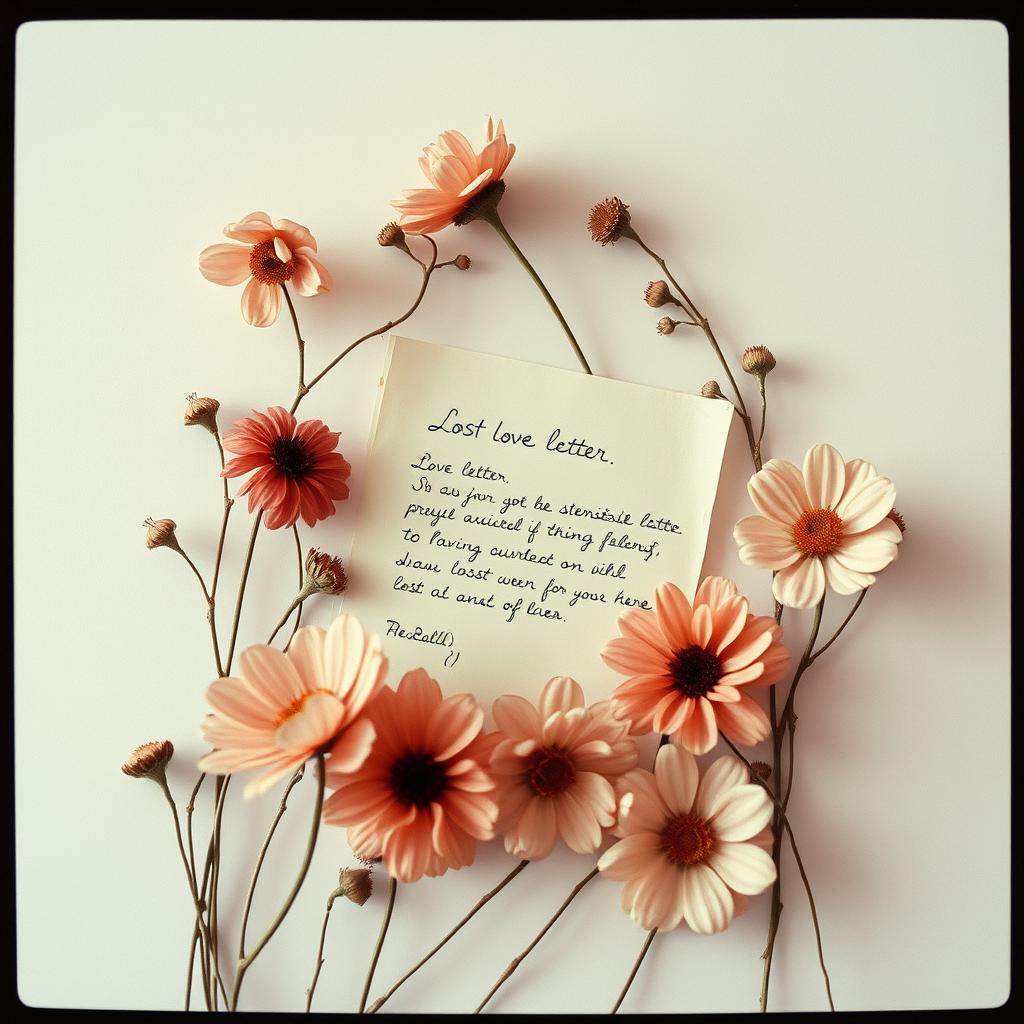 Lost love letter.
Love letter.
So au jron got he stensisle latte
preyel auicid if thing faleng,
to laving curdect on vild
shaw losst ween for your here
lost at anat of laen.